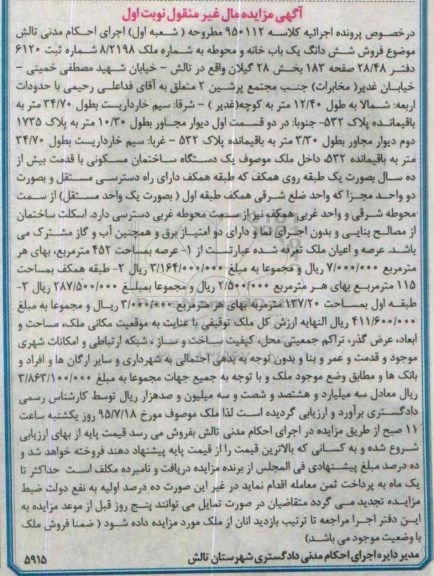 آگهی مزایده مال غیر منقول نوبت اول
درخصوص پرونده اجرائیه کلاسه ۹۵۰۱۱۲ مطروحه ( شعبه اول) اجرای احکام مدنی تالش
موضوع فروش شش دانگ یک باب خانه و محوطه به شماره ملک ۸/۲۱۹۸ شماره ثبت ۶۱۲۰
دفتر ۲۸/۴۸ صفحه ۱۸۳ بخش ۲۸ گیلان واقع در تالش - خیابان شهید مصطفی خمینی -
خیابان غدیر( مخابرات) جنب مجتمع پرشین ۲ متعلق به آقای فداعلی رحیمی با حدودات
اربعه: شمالا به طول ۱۲/۴۰ متر به کوچه(غدیر ) - شرقا: سیم خارداریست بطول ۳۴/۷۰ متر به
باقیمانده پلاک ۵۳۲- جنوبا: در دو قسمت اول دیوار مجاور بطول ۱۰/۳۰ متر به پلاک ۱۷۳۵
دوم دیوار مجاور بطول ۳/۳۰ متر به باقیمانده پلاک ۵۳۲ - غربا: سیم خارداریست بطول ۳۴/۷۰
متر به باقیمانده ۵۳۲، داخل ملک موصوف یک دستگاه ساختمان مسکونی با قدمت بیش از
ده سال بصورت یک طبقه روی همکف که طبقه همکف دارای راه دسترسی مستقل و بصورت
دو واحد مجزا که واحد ضلع شرقی همکف طبقه اول ( بصورت یک واحد مستقل) از سمت
محوطه شرقی و واحد غربی همکف نیز از سمت محوطه غربی دسترسی دارد. اسکلت ساختمان
از مصالح بنایی و بدون اجرای نما و دارای دو امتیاز برق و همچنین آب و گاز مشترک می
باشد. عرصه و اعیان ملک تعرفه شده عبارتست از ۱- عرصه بمساحت ۴۵۲ مترمربع، بهای هر
مترمربع ۷/۰۰۰/۰۰۰ ریال و مجموعا به مبلغ ۳/۱۶۴/۰۰۰/۰۰۰ ریال ۲- طبقه همکف بمساحت
۱۱۵ مترمربع بهای هر مترمربع ۲/۵۰۰/۰۰۰ ریال و مجموعا بمبلغ ۲۸۷/۵۰۰/۰۰۰ ریال ۳-
طبقه اول بمساحت ۱۳۷/۲۰ مترمربع بهای هر مترمربع ۳/۰۰۰/۰۰۰ ریال و مجموعا به مبلغ
۴۱۱/۶۰۰/۰۰۰ ریال النهایه ارزش کل ملک توقیفی با عنایت به موقعیت مکانی ملک، مساحت و
ابعاد، عرض گذر، تراکم جمعیتی محل، کیفیت ساخت و ساز، شبکه ارتباطی و امکانات شهری
موجود و قدمت و عمر و بنا و بدون توجه به بدهی احتمالی به شهرداری و سایر ارگان ها و افراد و
بانک ها و مطابق وضع موجود ملک و با توجه به جمیع جهات مجموعا به مبلغ ۳/۸۶۳/۱۰۰/۰۰۰
ریال معادل سه میلیارد و هشتصد و شصت و سه میلیون و صدهزار ریال توسط کارشناس رسمی
دادگستری برآورد و ارزیابی گردیده است لذا ملک موصوف مورخ ۹۵/۷/۱۸ روز یکشنبه ساعت
۱۱ صبح از طریق مزایده در اجرای احکام مدنی تالش بفروش می رسد قیمت پایه از بهای ارزیابی
شروع شده و به کسانی که بالاترین قیمت را از قیمت پایه پیشنهاد دهند فروخته خواهد شد و
ده درصد مبلغ پیشنهادی فی المجلس از برنده مزایده دریافت و نامبرده مکلف است حداکثر تا
یک ماه به پرداخت ثمن معامله اقدام نماید در غیر این صورت ده درصد اولیه به نفع دولت ضبط
مزایده تجدید می گردد متقاضیان در صورت تمایل می توانند پنج روز قبل از موعد مزایده به
این دفتر اجرا مراجعه تا ترتیب بازدید انان از ملک مورد مزایده داده شود ( ضمنا فروش ملک
با وضعیت موجود می باشد)
مدیر دایره اجرای احکام مدنی دادگستری شهرستان تالش
۵۹۱۵